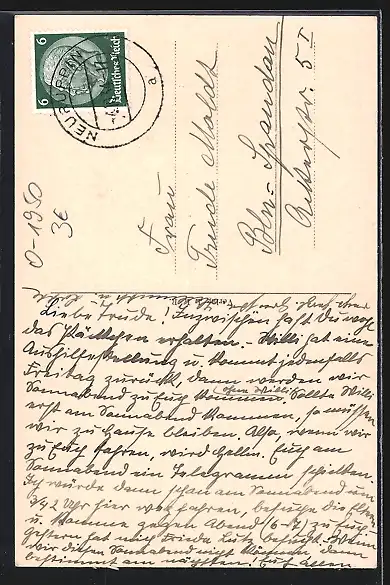 6 6
Deutsches Reich
NEURUPPIN
a
O-1950
3€
Frau
Trude Maldt
Bln.-Spandau
5 I
Liebe Trude! Inzwischen hast Du wohl
das Päckchen erhalten. - Willi hat eine
Aushilfestellung u. kommt jedenfalls
Freitag zurück, dann werden wir
Sonnabend zu Euch kommen. Sollte Willi
(ohne Willi)
erst am Sonnabend kommen, so müssen
wir zu Hause bleiben. Also, wenn wir
zu Euch fahren, wird Euch am
Sonnabend ein Telegramm schicken.
Ich würde dann schon am Sonnabend um
Uhr hier wegfahren, besuche die
u. komme gegen Abend (6-7) zu Euch.
Gestern hat mich Frieda Lütz besucht. Wenn
wir diesen Sonnabend nicht kommen, dann
bestimmt am nächsten! Euch Allen